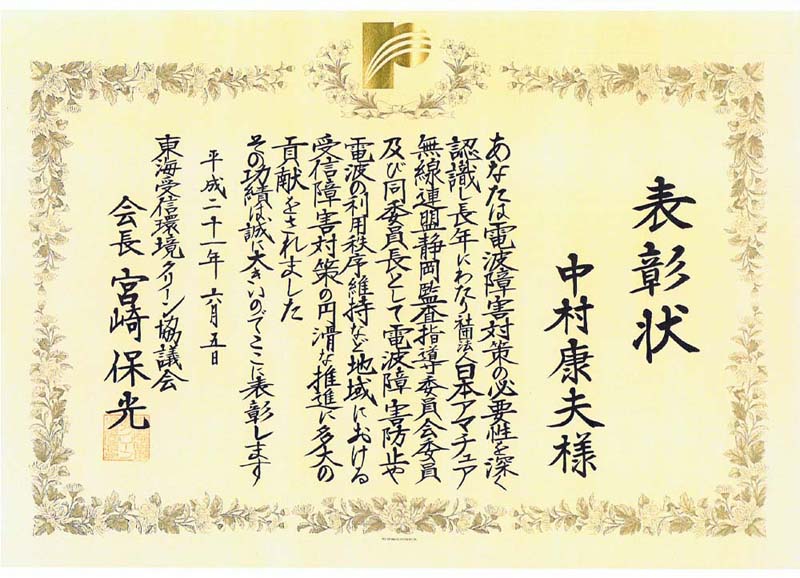 表彰状
中村康夫様
あなたは電波障害対策の必要性を深く
認識し長年にわたり社団法人日本アマチュア
無線連盟静岡監査指導委員会委員
及び同委員長として電波障害防止や
電波の利用秩序維持など地域における
受信障害対策の円滑な推進に多大の
貢献をされました
その功績は誠に大きいのでここに表彰します
平成二十一年六月五日
東海受信環境クリーン協議会
会長宮崎保光